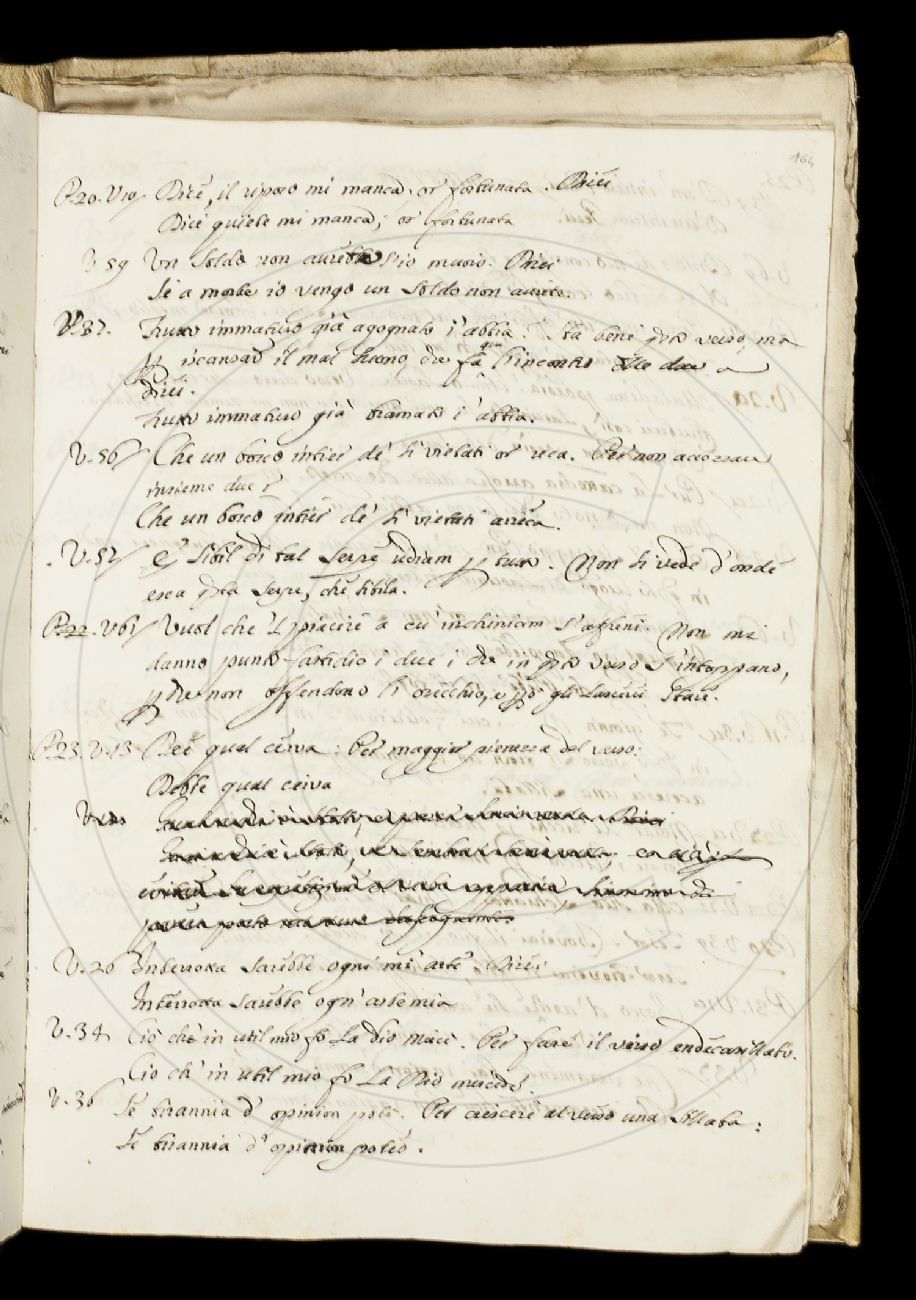 164
P. 20. V 10/ Dice, il riposo mi manca; or fortunata. Direi
Dice quiete mi manca; or fortunata
V 59 Un soldo non avrebbe s'io muoio. Direi
Se a morte io vengo un soldo non avrete.
V. 32. Frutto immaturo già agognato i' abbia. Sta bene questo verso, ma
 il mal suono, che fa qui l'incontro delle due a
Direi.
Frutto immaturo già bramato i' abbia.
V. 56/ Che un bosco intier de' si vietati or reca. Per non accozzare
insieme due r
Che un bosco intier de' si vietati arreca.
V. 57/ E'l sibil di tal serpe udiam per tutto. Non si vede d'onde
esca questa serpe, che sibila.
P. 22. V 61/ Vuol che 'l piacere a cu' inchiniam s'affreni. Non mi
danno punto fastidio i due i che in questo verso s'intoppano,
perche non offendono l'orecchio, e però gli lascierei stare.
P. 23. V. 13 Dee qual cerva: Per maggior pienezza del verso:
Debbe qual cerva
V. 26 Interrotta sarebbe ogni mi' arte. Direi
Interrotta sarebbe ogn'arte mia
V. 34 Ciò che in util mio fo La Dio mace. Per fare il verso endecasillabo.
Ciò ch' in util mio fo La Dio mercede.
V. 36 Se tirannia d' opinion pote. Per crescere al verso una sillaba:
Se tirannia d' opinion poteo.